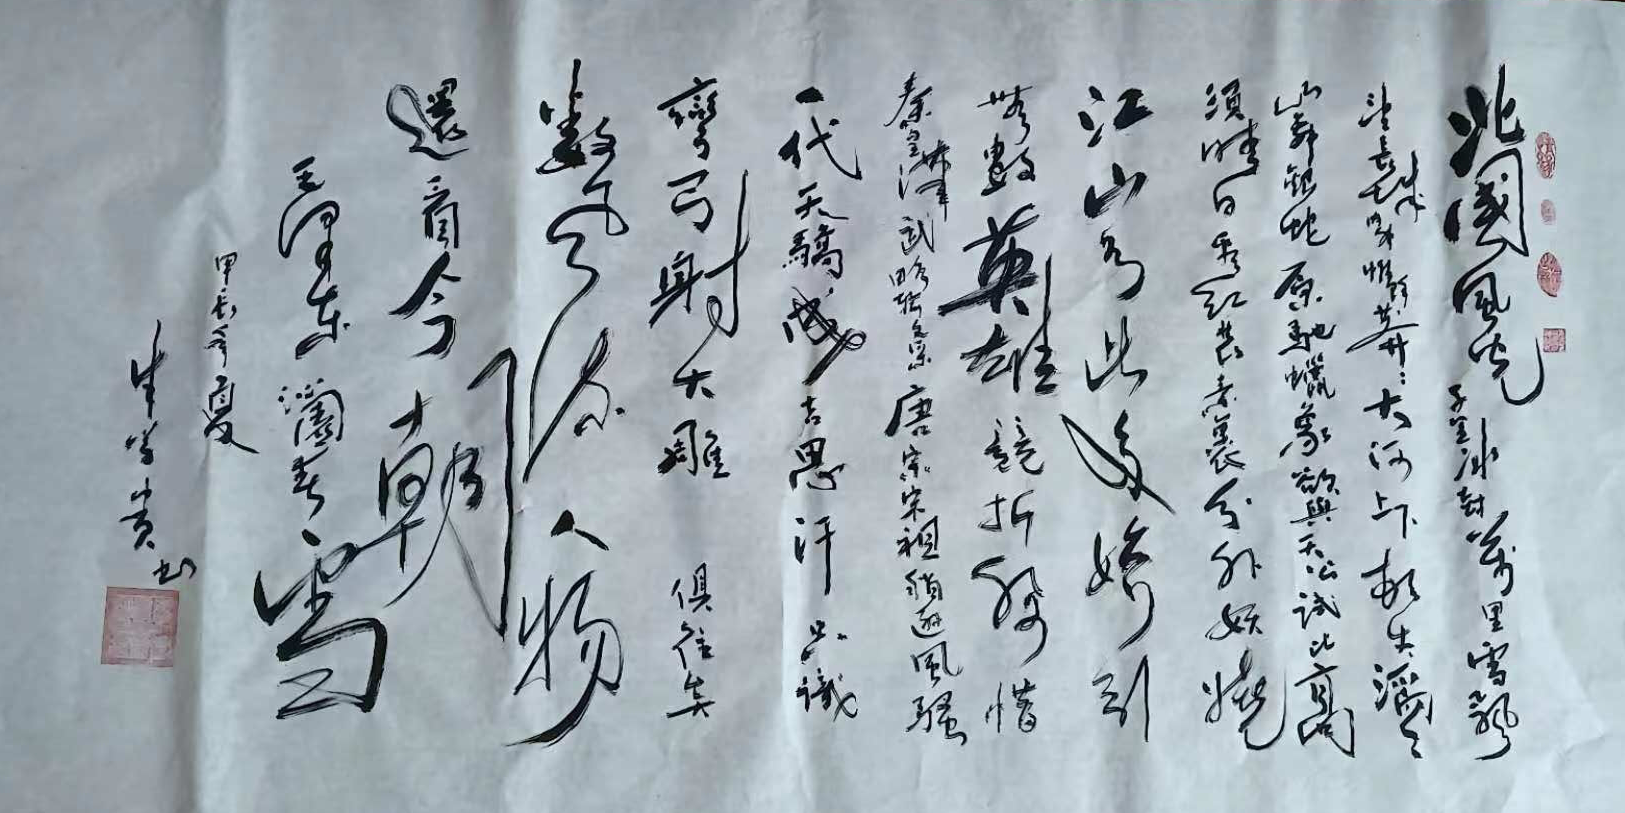 北國風光千里冰封萬里雪飄
望長城內外惟餘莽莽:大河上下頓失滔
山舞銀蛇原馳蠟象欲與天公試比高
須晴日看紅裝素裹分外妖嬈
江山如此多嬌引
無數英雄競折腰惜
秦皇漢武略輸文采唐宗宋祖稍遜風騷
一代天驕成吉思汗只識
彎弓射大雕俱往矣
數風流人物
還看今朝
毛澤東沁園春雪
甲辰年夏
書